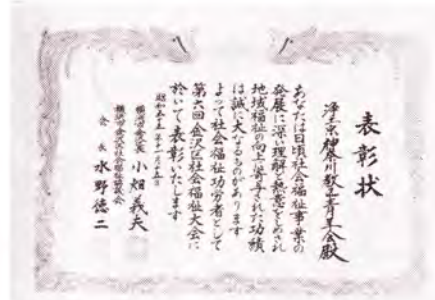 表彰状
浄土宗神奈川教区青年会殿
あなたは日頃社会福祉事業の
発展に深い理解と熱意をもたれ
地域福祉の向上に寄与された功績
は誠に大なるものがあります
よって社会福祉功労者として
第六回金沢区社会福祉大会に
於いて表彰いたします
昭和五十五年十一月十五日
横浜市金沢区長 小畑義夫
横浜市金沢区社会福祉協議会
会長 水野徳二